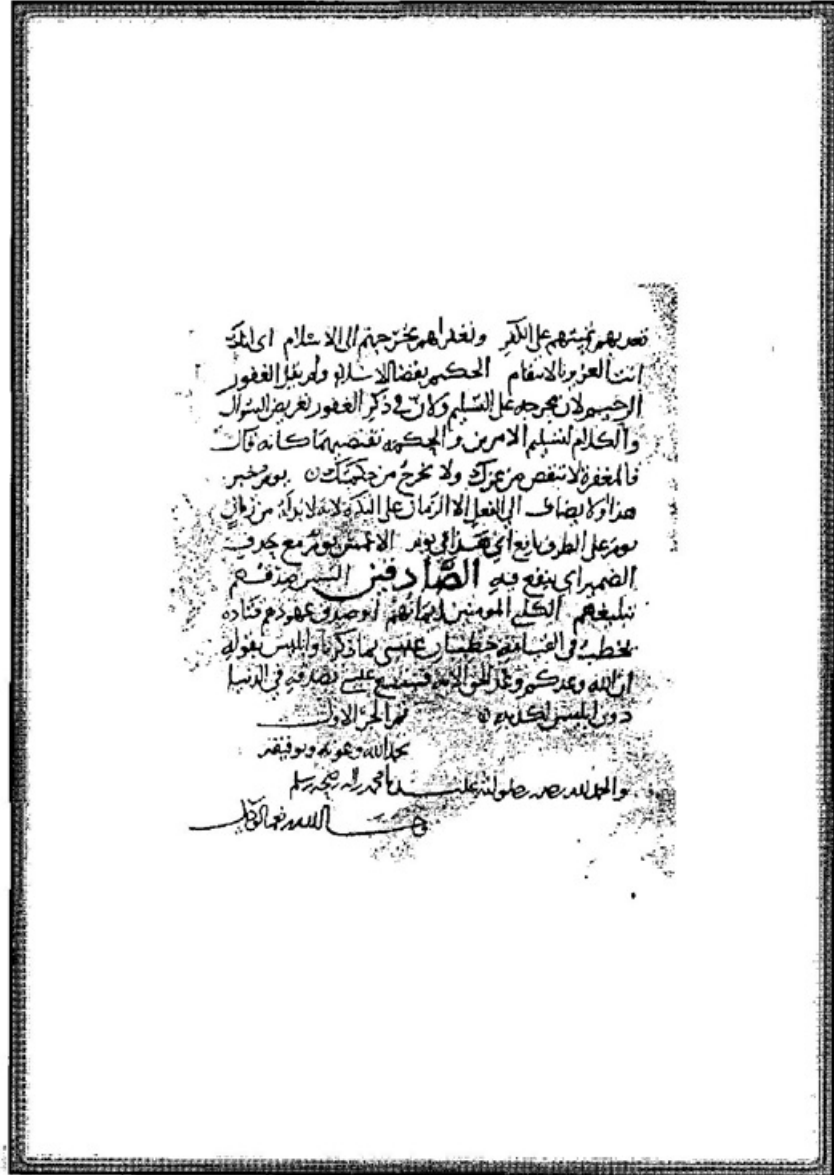 تعذبهم تميتهم على الكفر وتغفر لهم بخروجهم الى الاسلام اى انك
انت العزيز بالانتقام الحكيم الاسلام ولم يقل الغفور
الرحيم لان مخرجه على التسليم ولان فى ذكر الغفور تعريض السوال
والكلام لتسليم الامرين والحكمة تقتضيهما كانه قال
فالمغفرة لا تنقص من عزك ولا تخرج من حكمتك يوم خبر
هذا ولا يضاف الى الفعل الا الزمان على لانه لا بد له من زمان
يوم على الظرف نافع اى هذا فى يوم الاعمش يوم مع حذف
الضمير اى ينفع فيه الصادقين صدقهم
تبليغهم الكلبى المومنين ايمانهم او صدق عهودهم قتادة
يخطب فى القيامة خطيبان عيسى بما ذكرنا وابليس بقوله
ان الله وعدكم وعد الحق الاية فينفع عيسى صدقه فى الدنيا
دون ابليس لكذبه تم الجز الاول
بحمد الله وعونه وتوفيقه
والحمد لله محمد واله وصحبه وسلم
الله ونعم الوكيل